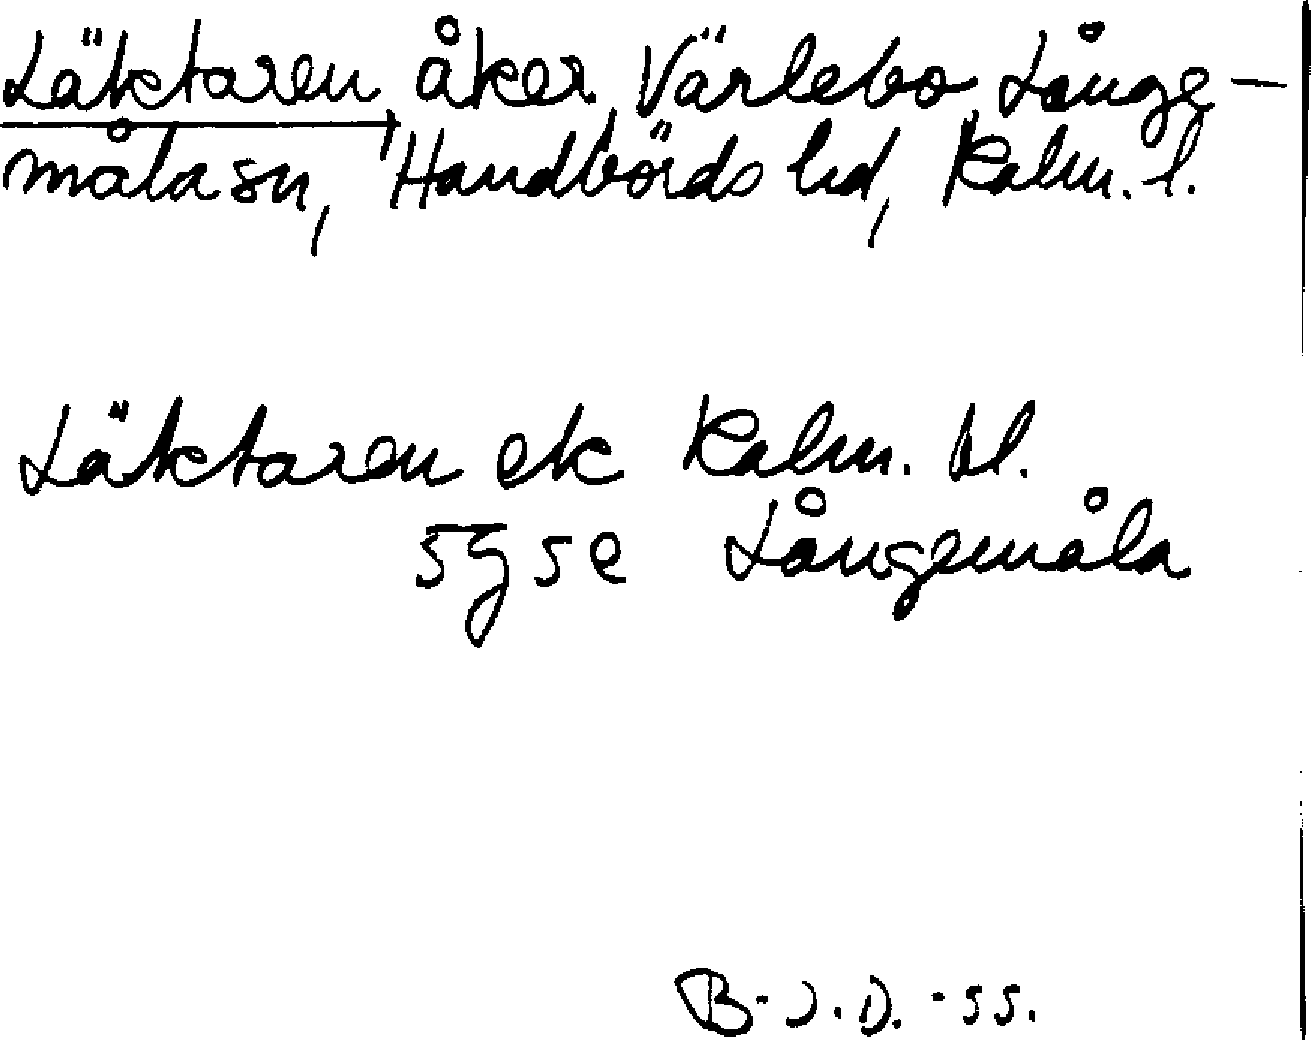 Läktaren, åker, Värlebo, Långe-
måla sn, Handbörds hd, Kalm. l.
Läktaren ek Kalm. bl.
5g5e Långemåla
B-J.D.-55.